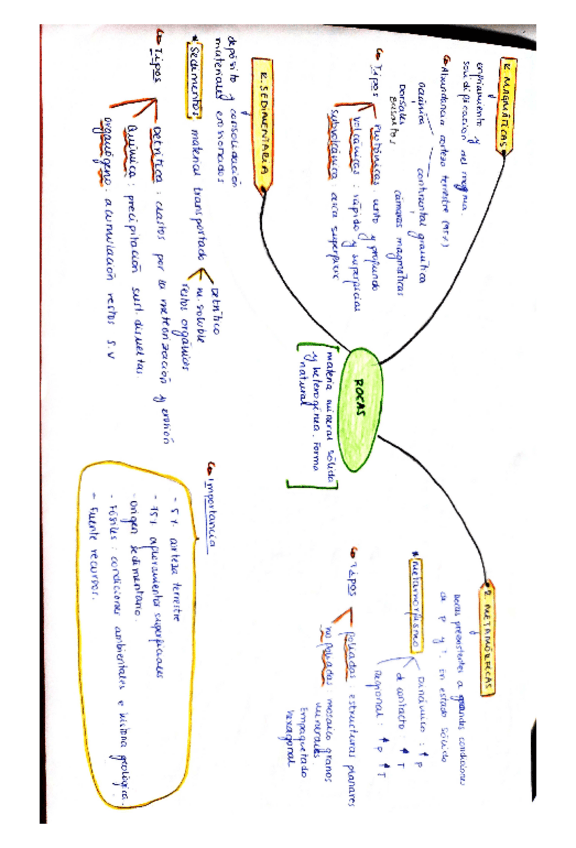 ROCAS
materia mineral sólida
y heterogénea. Forma
natural
R. MAGMÁTICAS
enfriamiento y
solidificación del magma
Abundancia corteza terrestre
oceánica
continental granítica
Dorsales
BASALTOS
cámaras magmáticas
Tipos
Plutónicas: lento y profundo
volcánicas: rápido y superficies
subvolcánica: cerca superficie
R. METAMÓRFICAS
Rocas preexistentes a grandes condiciones
de P y T. En estado sólido
Metamorfismo
Dinámico: ↑ P
de contacto ↑ T
Regional: ↑ P ↑ T
Tipos
foliados: estructuras planares
no foliados: mosaico granos
minerales
Empaquetado
hexagonal
R. SEDIMENTARIA
depósito y consolidación
materiales erosionados
Sedimentos material transportado
Detrítico
m. soluble
restos orgánicos
Tipos
Detrítica: clastos por la meteorización y erosión
Química: precipitación sust. disueltas
organógeno: acumulación restos S.V
Importancia
- 5% corteza terrestre
- 75% afloramientos superficiales
- origen sedimentario.
- Fósiles: condiciones ambientales e historia geológica.
- Fuente recursos.